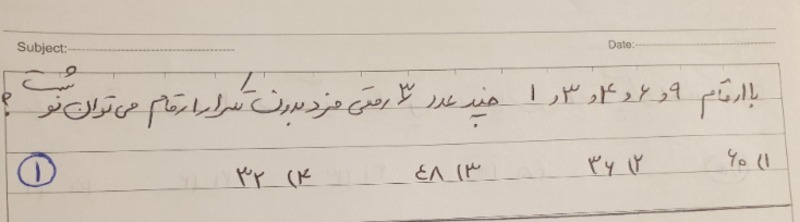 Subject: Date:
با ارقام ۹ و ۶ و ۴ و ۳ و ۱ چند عدد ۳ رقمی فرد بدون تکرار ارقام می توان نوشت ؟
۱) ۶۰ ۲) ۳۶ ۳) ۴۸ ۴) ۳۲ ۱